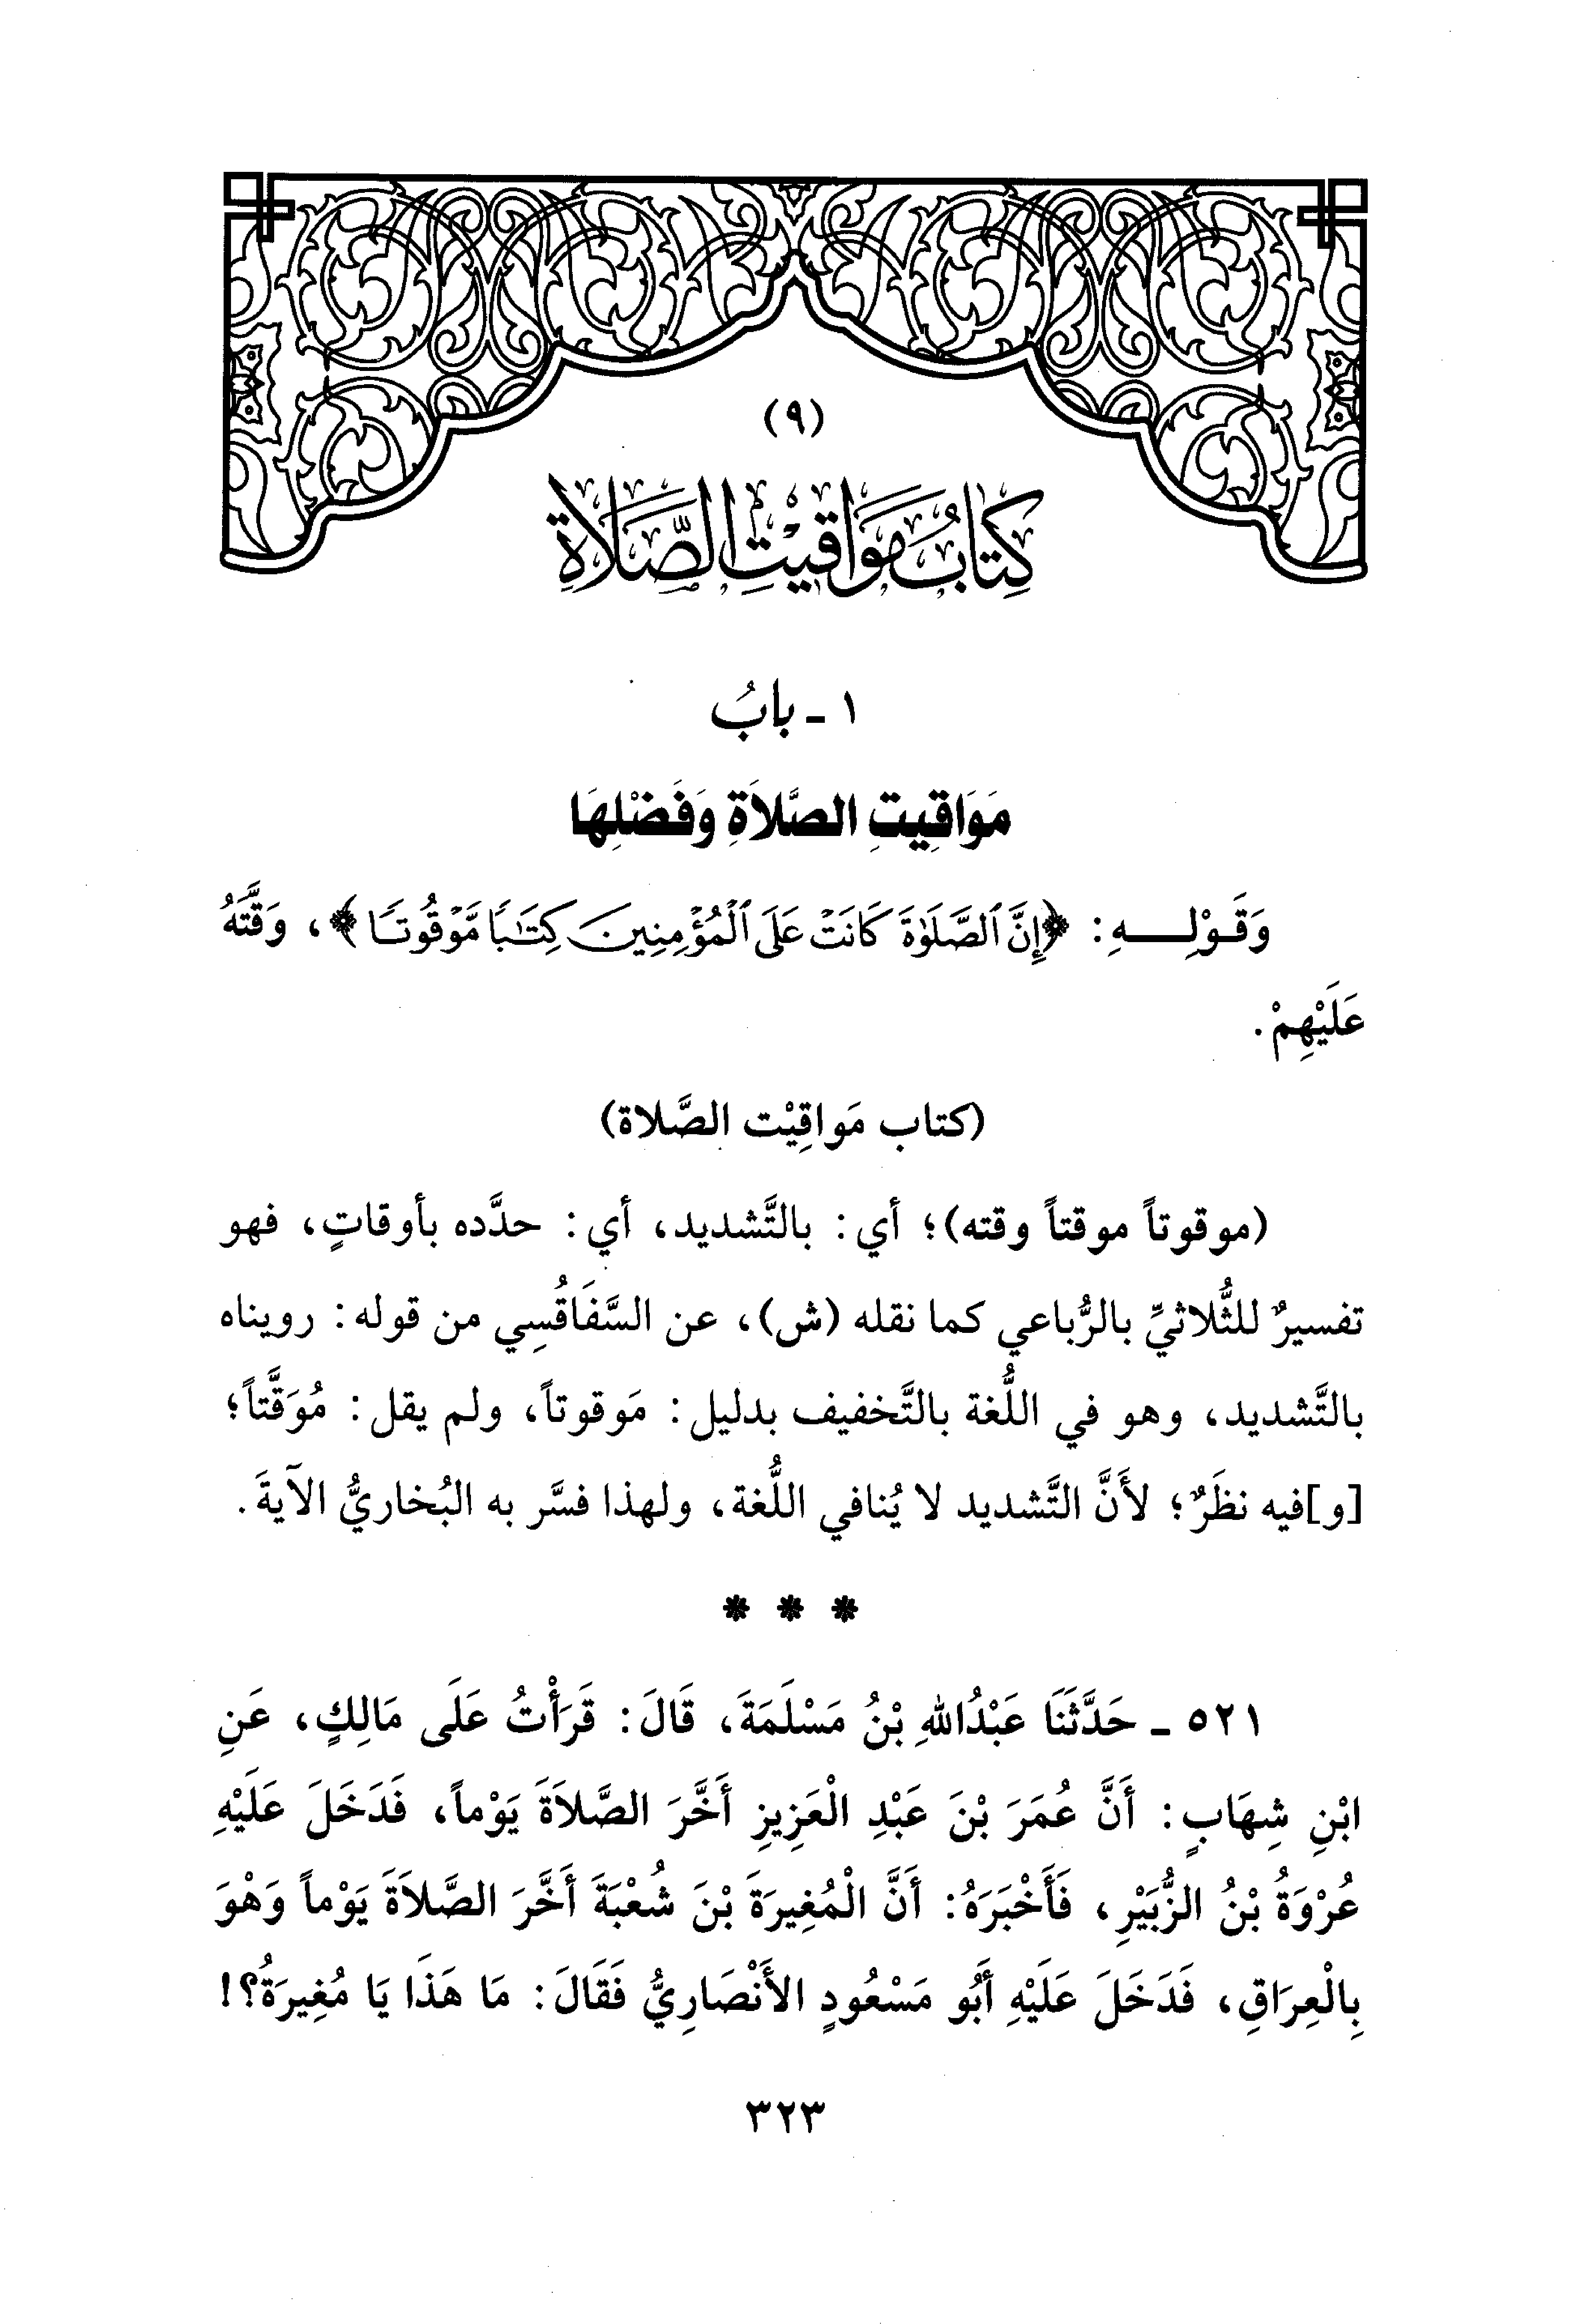 (٩)
كِتَابُ مَوَاقِيْتِ الصَّلَاةِ
١ ـ بابُ
مَوَاقِيتِ الصَّلاَةِ وَفَضْلِهَا
وَقَـوْلِــــهِ: ﴿إِنَّ ٱلصَّلَوٰةَ كَانَتْ عَلَى ٱلْمُؤْمِنِينَ كِتَٰبًا مَّوْقُوتًا﴾، وَقَّتَهُ
عَلَيْهِمْ.
(كتاب مَواقِيْت الصَّلاة)
(موقوتاً موقتاً وقته)؛ أي: بالتَّشديد، أي: حدَّده بأوقاتٍ، فهو
تفسيرٌ للثُّلاثيِّ بالرُّباعي كما نقله (ش)، عن السَّفَاقُسِي من قوله: رويناه
بالتَّشديد، وهو في اللُّغة بالتَّخفيف بدليل: مَوقوتاً، ولم يقل: مُوَقَّتاً؛
[و]فيه نظَرٌ؛ لأَنَّ التَّشديد لا يُنافي اللُّغة، ولهذا فسَّر به البُخاريُّ الآيةَ.
* * *
٥٢١ ـ حَدَّثَنَا عَبْدُاللهِ بْنُ مَسْلَمَةَ، قَالَ: قَرَأْتُ عَلَى مَالِكٍ، عَنِ
ابْنِ شِهَابٍ: أَنَّ عُمَرَ بْنَ عَبْدِ الْعَزِيزِ أَخَّرَ الصَّلاَةَ يَوْماً، فَدَخَلَ عَلَيْهِ
عُرْوَةُ بْنُ الزُّبَيْرِ، فَأَخْبَرَهُ: أَنَّ الْمُغِيرَةَ بْنَ شُعْبَةَ أَخَّرَ الصَّلاَةَ يَوْماً وَهْوَ
بِالْعِرَاقِ، فَدَخَلَ عَلَيْهِ أَبُو مَسْعُودٍ الأَنْصَارِيُّ فَقَالَ: مَا هَذَا يَا مُغِيرَةُ؟!
٣٢٣